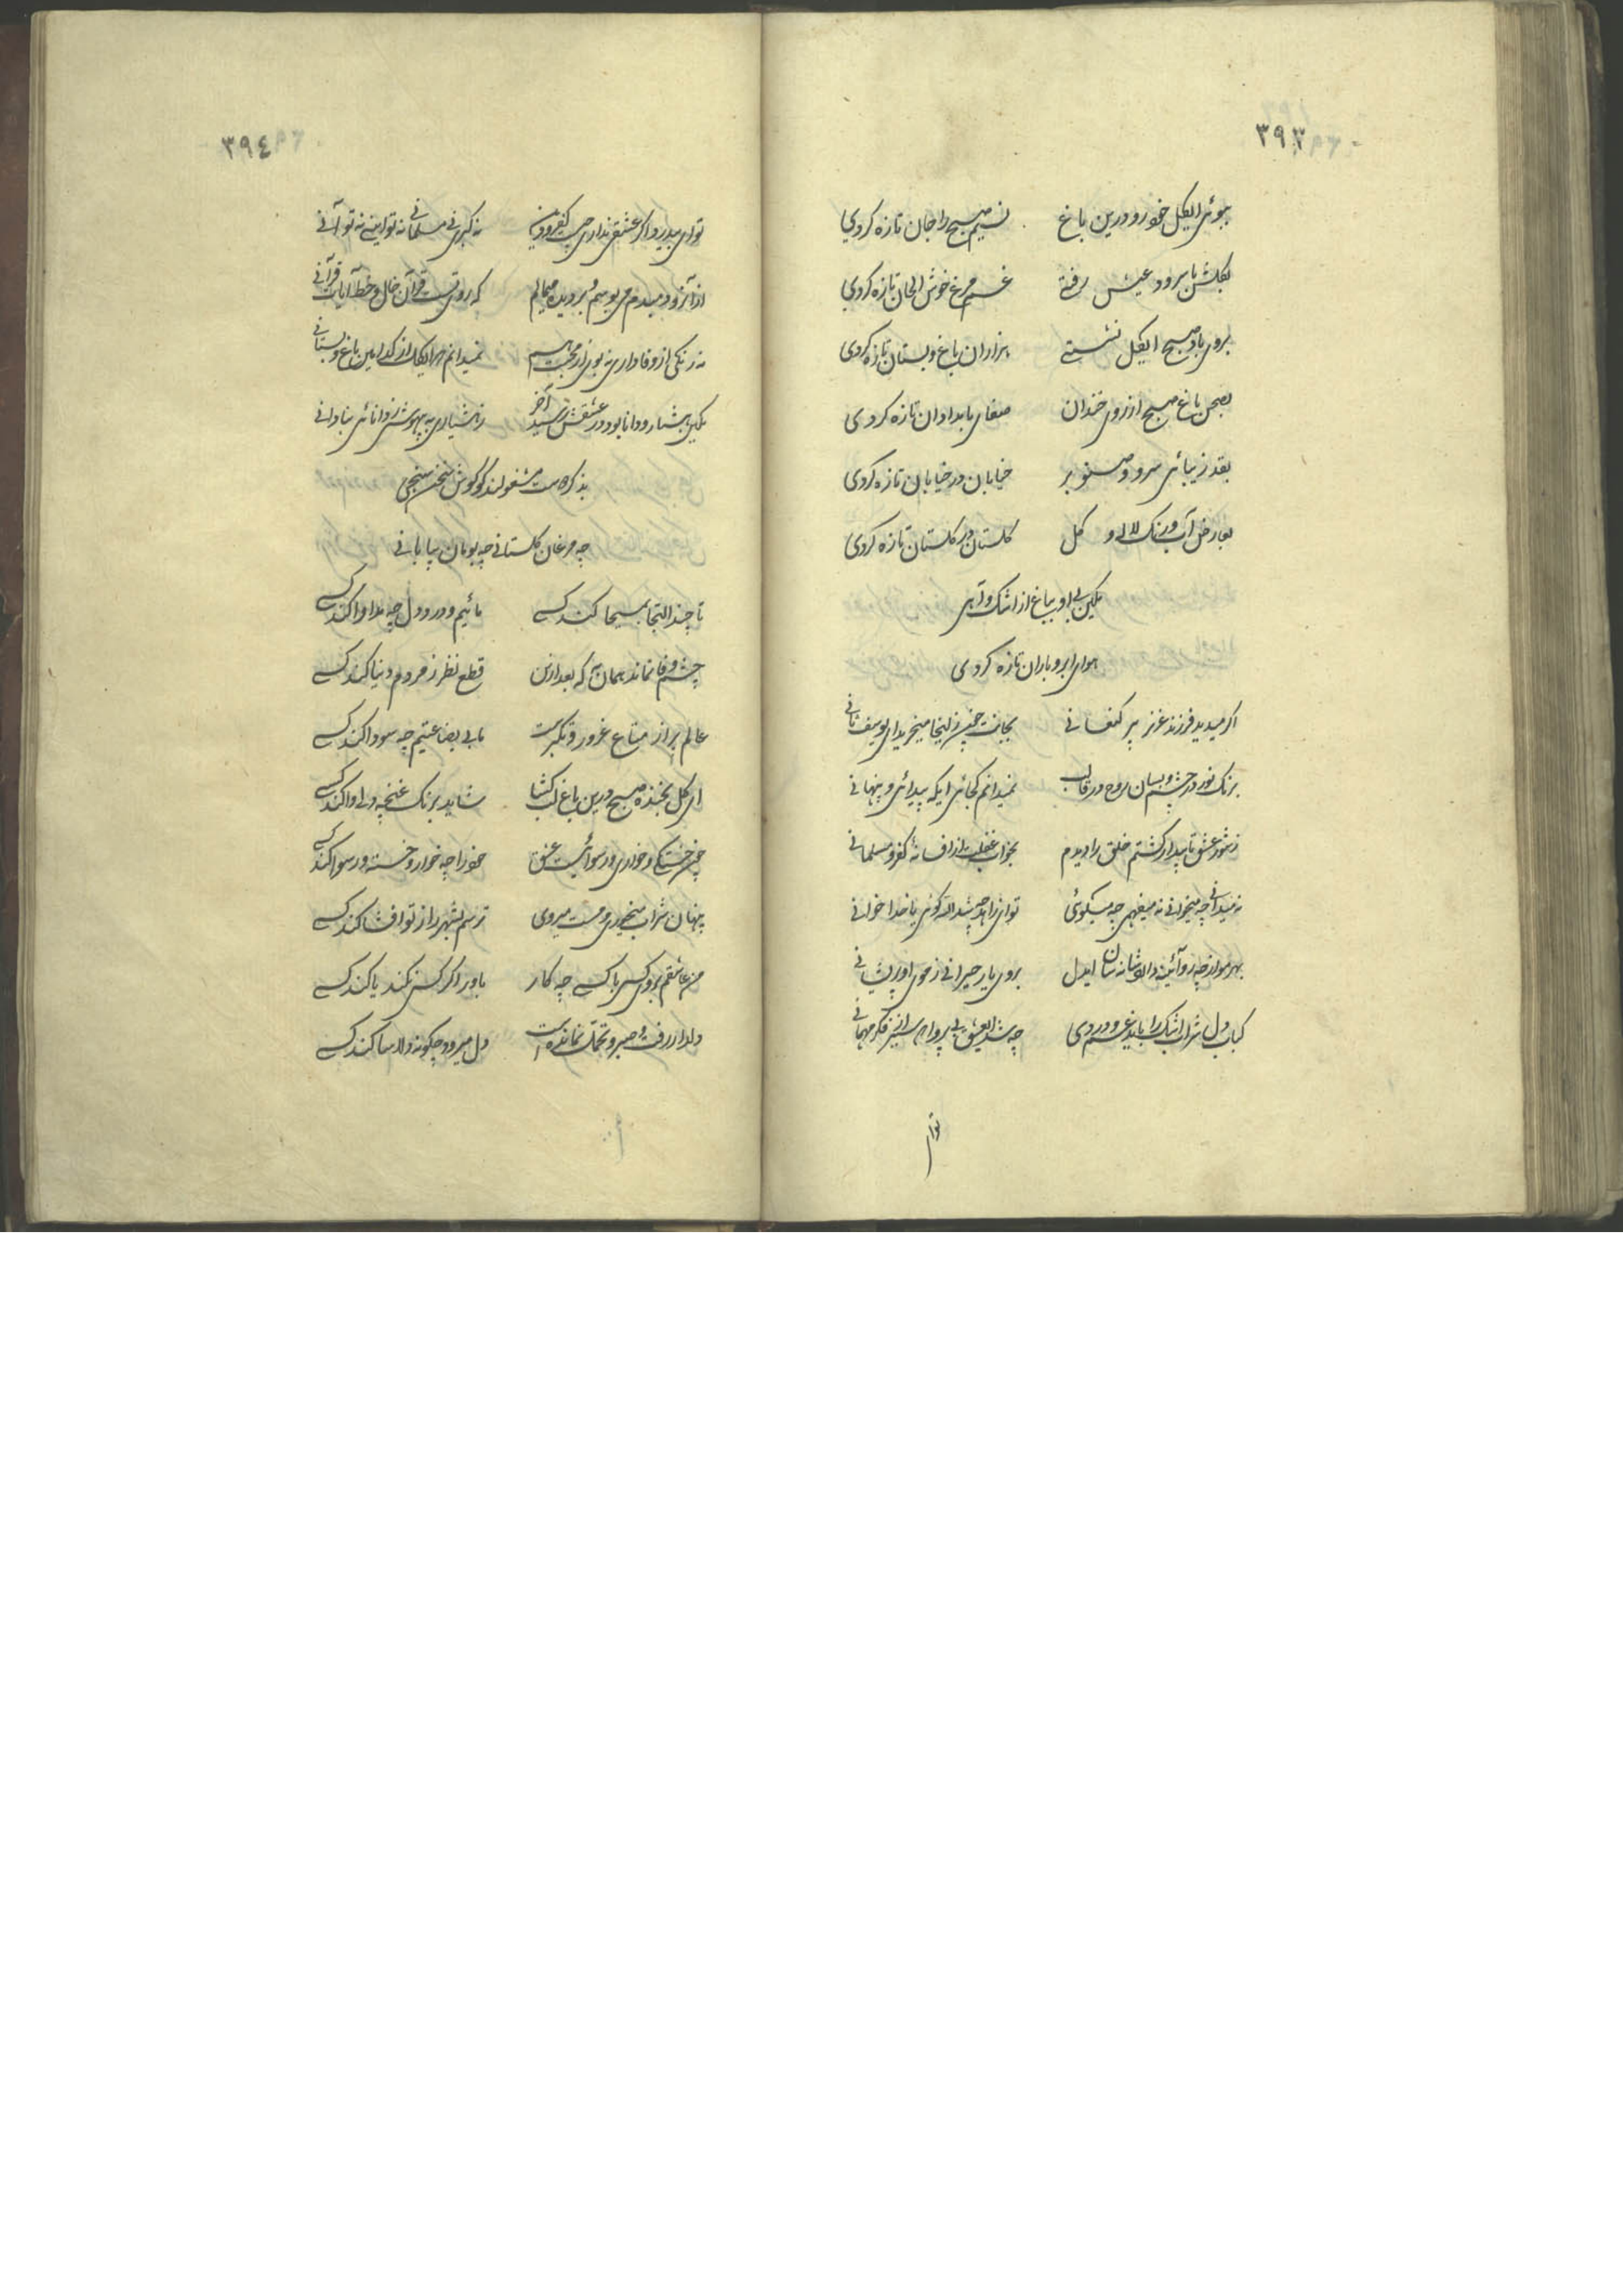 ٣٩٣
ببوئی ایگل خودرو درین باغ نسیم صبح را جان تازه کردی
بگلشن با سرود عیش رفتی غم مرغ خوش الحان تازه کردی
بروی باد صبح ایگل نشستی هزاران باغ و بستان تازه کردی
بصحن باغ صبح از روی خندان صفای بامدادان تازه کردی
بقد زیبائی سرو و صنوبر خیابان در خیابان تازه کردی
بعارض آب و رنگ لاله و گل گلستان در گلستان تازه کردی
بی او بباغ از اشک و آهی
هوای ابر و باران تازه کردی
اگر میدید فرزند عزیز پیر کنعانی بجانت چون زلیخا میخرید ای یوسف ثانی
برنگ نور در چشم و بسان روح در قالب نمیدانم کجائی ایکه پیدائی و پنهانی
ز شور عشق تا بیدار گشتم خلق را دیدم بخواب غفلت از افسانهٔ کفر و مسلمانی
نه میدانی چه میخوانی نه میفهمی چه میگوئی تو ای زاهد چه شد الله گوئی یا خدا خوانی
بهر مو از چه رو آئینه دل شانه سان ایدل بروی یار حیرانی ز موی او پریشانی
کباب دل شراب اشک را باید غم و دردی چه شد ای عشق بی پروا سر از فکر مهمانی
توای
٣٩٤
تو ای بیدرد اگر عشقی نداری چیست کفر و دین نه گبری نی مسلمانی نه تو اینی نه تو آنی
از آنرو دمبدم می بوسم و بر دیده میمالم که رویت قرآن خال و خط آیات قرآنی
نه رنگی از وفا داری نه بوئی از محبت هم نمیدانم چرا ایگل از کدامین باغ و بستانی
هشیار و دانا بود در عشقش رسید آخر ز هشیاری به بیهوشی ز دانائی بنادانی
بذکر دوست مشغولند گو گوش سخن سنجی
چه مرغان گلستانی چه بومان بیابانی
تا چند التجا بمسیحا کند کسی مائیم و درد دل چه مداوا کند کسی
چشم وفا نماند همان به که بعد ازین قطع نظر ز مردم دنیا کند کسی
عالم پر از متاع غرور و تکبر است ما بی بضاعتیم چه سودا کند کسی
ای گل بخنده صبح درین باغ لب گشا شاید برنگ غنچه دلی وا کند کسی
چون خستگی و خواری و رسوائیست عشق خود را چه خوار و خسته و رسوا کند کسی
پنهان شراب میخوری و مست میروی ترسم بشهر راز تو افشا کند کسی
من عاشقم مرا بکس و ناکسی چه کار باور اگر کسی نکند یا کند کسی
دلدار رفت و صبر و تحمل نمانده است دل میرود چگونه دلاسا کند کسی